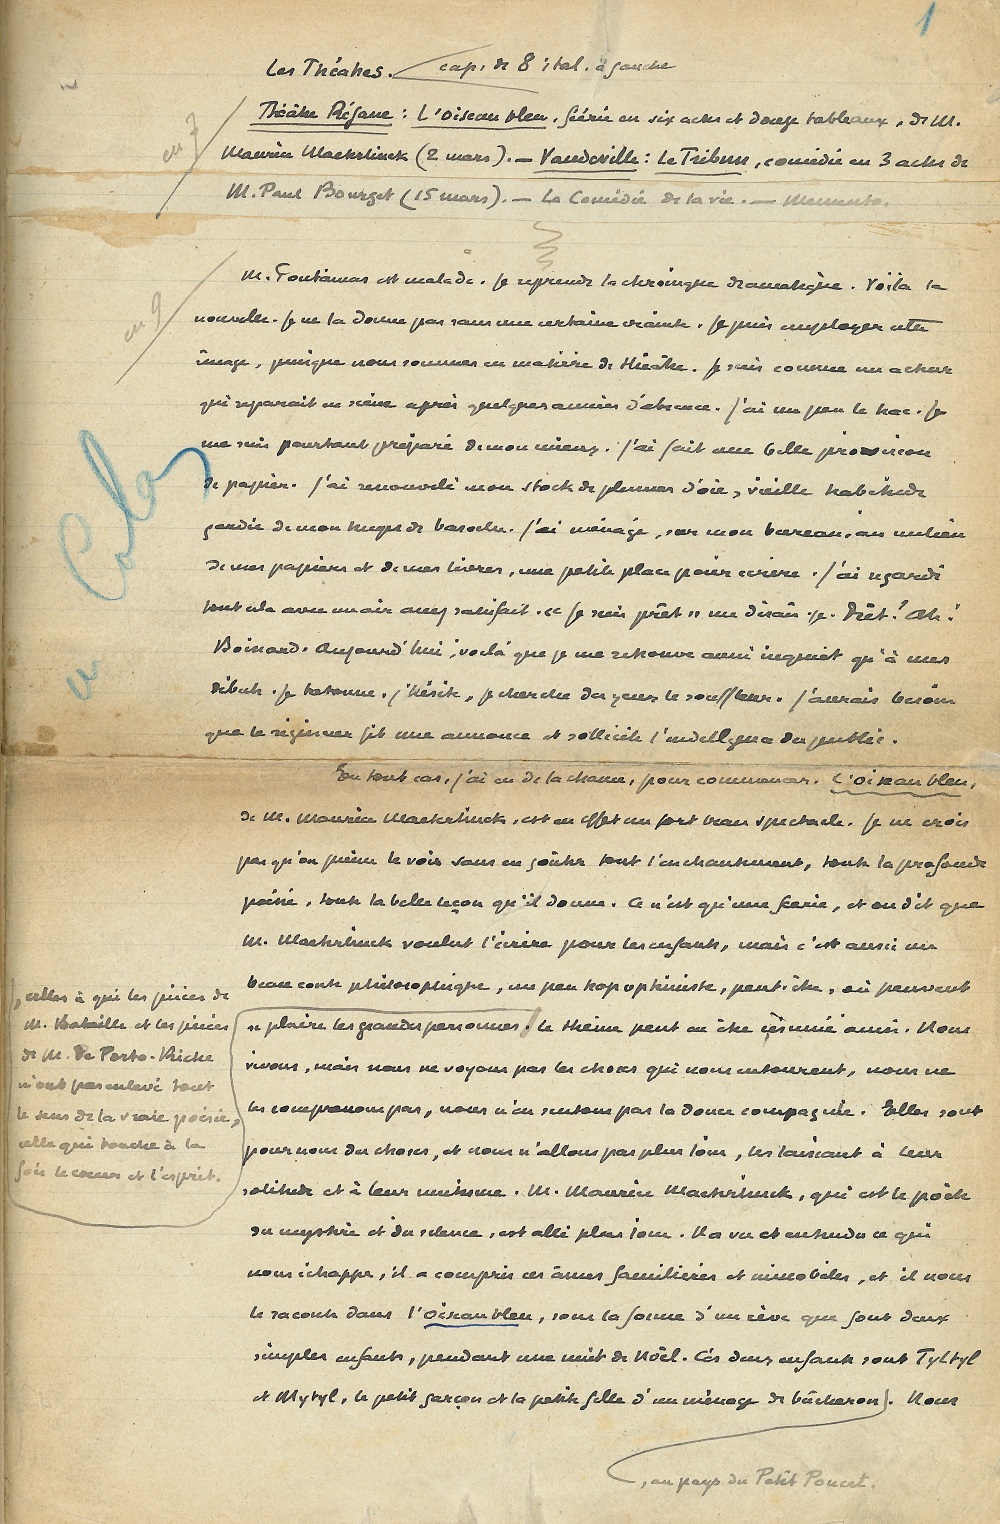 1
Les Théâtres. cap. de 8 ital. à gauche
en 7
Théâtre Réjane : L'Oiseau bleu, féérie en six actes et douze tableaux, de M.
Maurice Maeterlinck (2 mars). — Vaudeville : Le Tribun, comédie en 3 actes de
M. Paul Bourget (15 mars). — La Comédie de la vie. — Memento.
en 9
M. Fontainas est malade. Je reprends la chronique dramatique. Voilà la
nouvelle. Je ne la donne pas sans une certaine crainte. Je puis employer cette
image, puisque nous sommes en matière de théâtre. Je suis comme un acteur
qui reparait en scène après quelques années d'absence. J'ai un peu le trac. Je
me suis pourtant préparé de mon mieux. J'ai fait une belle provision
de papier. J'ai renouvelé mon stock de plumes d'oie, vieille habitude
gardée de mon temps de basoche. J'ai ménagé, sur mon bureau, au milieu
de mes papiers et de mes livres, une petite place pour écrire. J'ai regardé
tout cela avec un air assez satisfait. « Je suis prêt » me disais-je. Prêt ! Ah !
Boissard. Aujourd'hui, voilà que je me retrouve aussi inquiet qu'à mes
débuts. Je tatonne, j'hésite, je cherche des yeux le souffleur. J'aurais besoin
que le régisseur fit une annonce et sollicite l'indulgence du public.
En tout cas, j'ai eu de la chance, pour commencer. L'Oiseau bleu,
de M. Maurice Maeterlinck, est en effet un fort beau spectacle. Je ne crois
pas qu'on puisse le voir sans en goûter tout l'enchantement, toute la profonde
poésie, toute la belle leçon qu'il donne. Ce n'est qu'une féerie, et on dit que
M. Maeterlinck voulut l'écrire pour les enfants, mais c'est aussi un
beau conte philosophique, un peu trop optimiste, peut-être, où peuvent
se plaire les grandes personnes. Le thème peut en être résumé ainsi. Nous
, celles à qui les pièces de
M. Bataille et les pièces
de M. De Porto-Riche
n'ont pas enlevé tout
le sens de la vraie poésie,
celle qui touche à la
fois le cœur et l'esprit.
vivons, mais nous ne voyons pas les choses qui nous entourent, nous ne
les comprenons pas, nous n'en sentons pas la douce compagnie. Elles sont
pour nous des choses, et nous n'allons pas plus loin, les laissant à leur
solitude et à leur mutisme. M. Maurice Maeterlinck, qui est le poète
du mystère et du silence, est allé plus loin. Il a vu et entendu ce qui
nous échappe, il a compris ces âmes familières et immobiles, et il nous
le raconte dans l'Oiseau bleu, sous la forme d'un rêve que font deux
simples enfants, pendant une nuit de Noël. Ces deux enfants sont Tyltyl
et Mytyl, le petit garçon et la petite fille d'un ménage de bûcherons. Nous
, au pays du Petit Poucet.